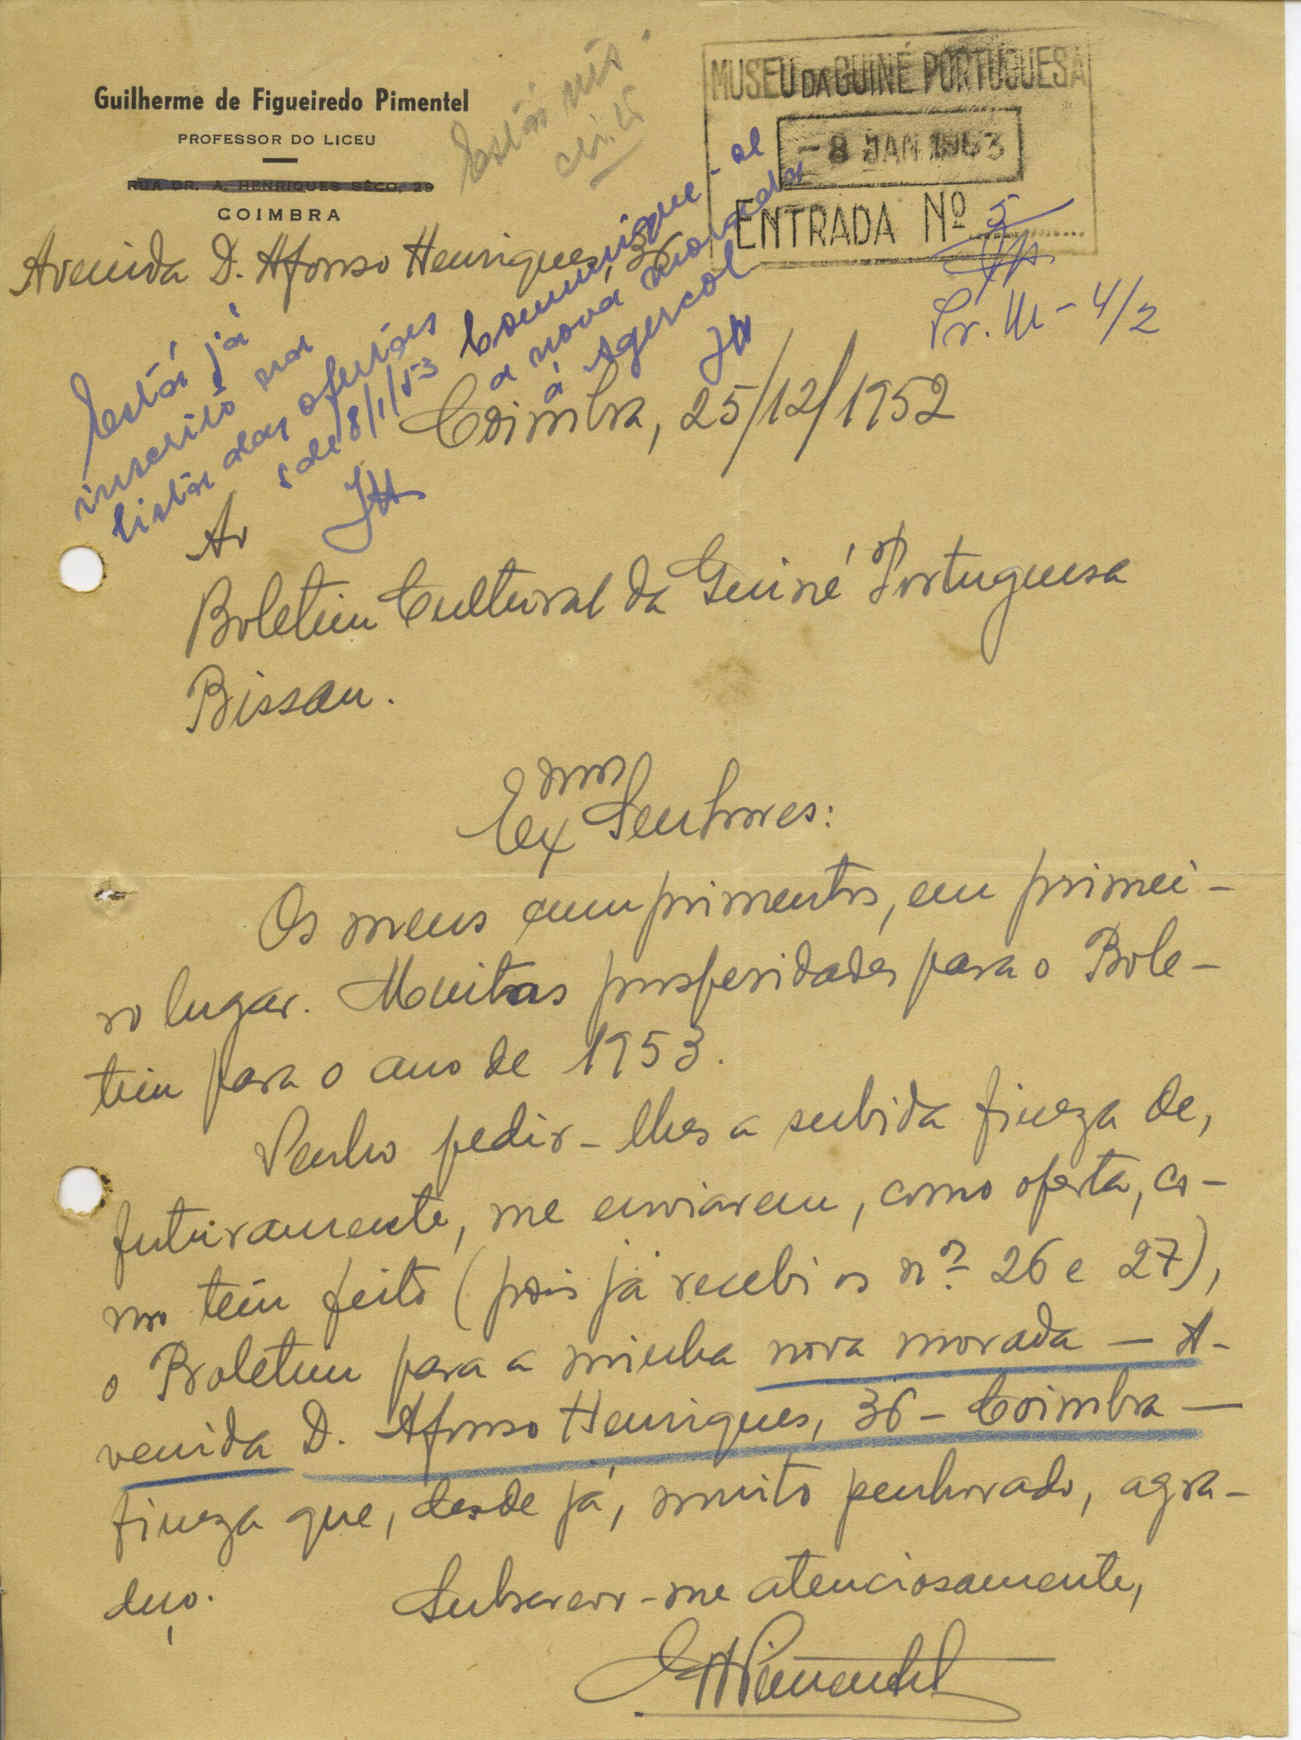 Guilherme de Figueiredo Pimentel
PROFESSOR DO LICEU
RUA DR. A. HENRIQUES SÊCO, 29
COIMBRA
Avenida D. Afonso Henriques, 36
MUSEU DA GUINÉ PORTUGUESA
-8 JAN 1953
ENTRADA Nº 5
Pr. M - 4/2
Está já
inscrito na
lista das ofertas
8/1/53
Comunique-se
a nova morada
à Agescol
Coimbra, 25/12/1952
Ao
Boletim Cultural da Guiné Portuguesa
Bissau.
Exmos Senhores:
Os meus cumprimentos, em primei-
ro lugar. Muitas prosperidades para o Bole-
tim para o ano de 1953.
Venho pedir-lhes a subida fineza de,
futuramente, me enviarem, como oferta, co-
mo têm feito (pois já recebi os nº 26 e 27),
o Boletim para a minha nova morada — A-
venida D. Afonso Henriques, 36 - Coimbra —
fineza que, desde já, muito penhorado, agra-
deço.
Subscrevo-me atenciosamente,
Pimentel